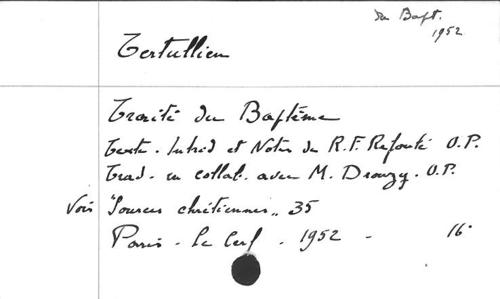 du Bapt.
1952
Tertullien
Traité du Baptême
Texte. Introd et Notes de R.F. Refoulé O.P.
Trad. en collab. avec M. Drouzy. O.P.
Voir "Sources chrétiennes" 35
Paris - Le Cerf - 1952 - 16°